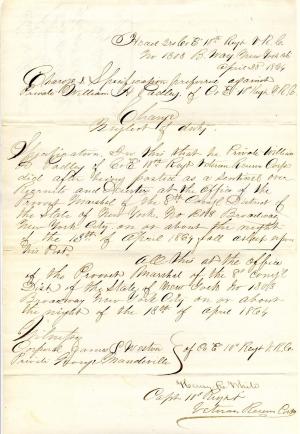 Head Qrs Co E 18th Regt V.R.C.
No 1303 B. Way New York
April 28 1864
Charge & Specification preferred against
Private William H. Ladley, of Co E 18 Regt V.R.C.
Charge
Neglect of duty
Specification, In this that he Private William
H. Ladley of Co E 18th Regt Veteran Reserve Corps
did after having posted as a sentinel over
Recruits and Deserter at the Office of the
Provost Marshal of the 8th Congl District of
the State of New York No 1303 Broadway
New York City, on or about the night
of the 18th of April 1864 fall asleep upon
his Post.
all this at the Office
of the Provost Marshal of the 8th Congl
Dist of the State of New York No 1303
Broadway New York City on or about
the night of the 18th of April 1864
Witnesses
Corporal James Weston
Private George Mandeville
of Co E 18 Regt V.R.C.
Capt 18 Regt
Veteran Reserve Corps